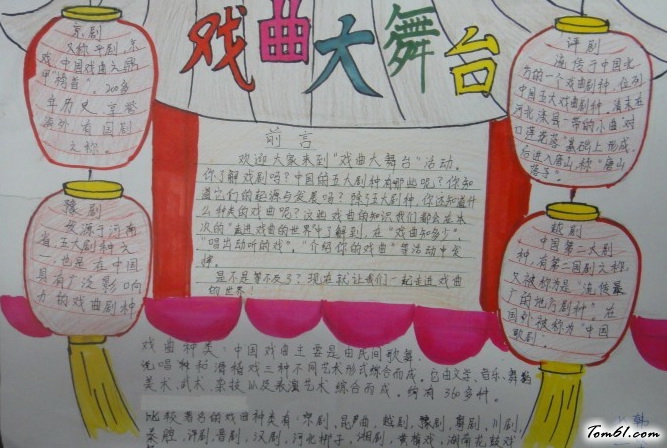 戏曲大舞台
京剧
又称平剧,京
戏,中国戏曲之
年历史,享誉
海外,有国剧
之称。
豫剧
发源于河南
省,五大剧种之
一,也是在中国
具有广泛影响
力的戏曲剧种
前言
欢迎大家来到“戏曲大舞台”活动。
你了解戏剧吗?中国的五大剧种有哪些呢?你知
道它们的起源与发展吗?除了五大剧种,你还知道什
么种类的戏曲呢?这些戏曲的知识我们都会在本
次的“走进戏曲的世界”中了解到,在“戏曲知多少”,
“唱出动听的戏”,“介绍你的戏曲”等活动中安
排。
是不是等不及了?现在就让我们一起走进戏曲
的世界
评剧
流传于中国北
方的一个戏曲剧种,位列
中国五大戏曲剧种,清末在
河北滦县一带的小曲“对
口莲花落”基础上形成,
后进入唐山,称“唐山
落子”。
越剧
中国第二大剧
种,有第二国剧之称,
又被称为是“流传最
广的地方剧种”。在
国外被称为“中国
歌剧”。
戏曲种类:中国戏曲主要是由民间歌舞、
说唱和滑稽戏三种不同艺术形式综合而成。它由文学、音乐、舞蹈
美术、武术、杂技以及表演艺术综合而成,约有360多种。
比较著名的戏曲种类有:京剧、昆曲、越剧、豫剧、粤剧、川剧、
秦腔、评剧、晋剧、汉剧、河北梆子、湘剧、黄梅戏、湖南花鼓戏
Tom61.com